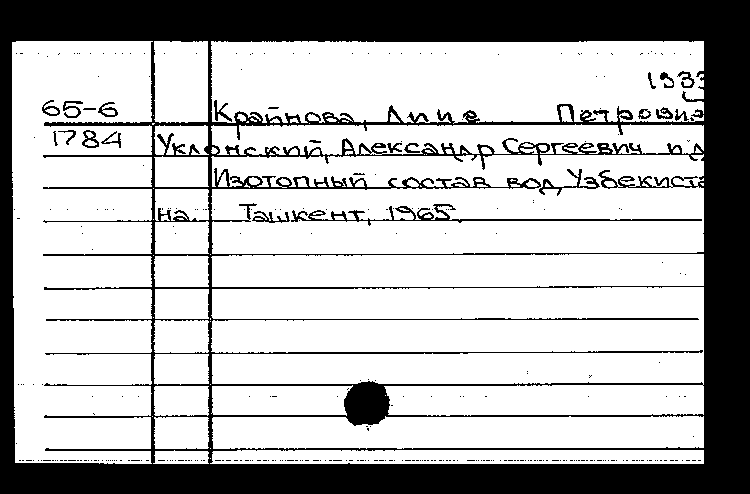 1933
65-6 Крайнова, Липе Петровна
1784 Уклонский, Александр Сергеевич и д
Изотопный состав вод Узбекиста
на. Ташкент, 1965.